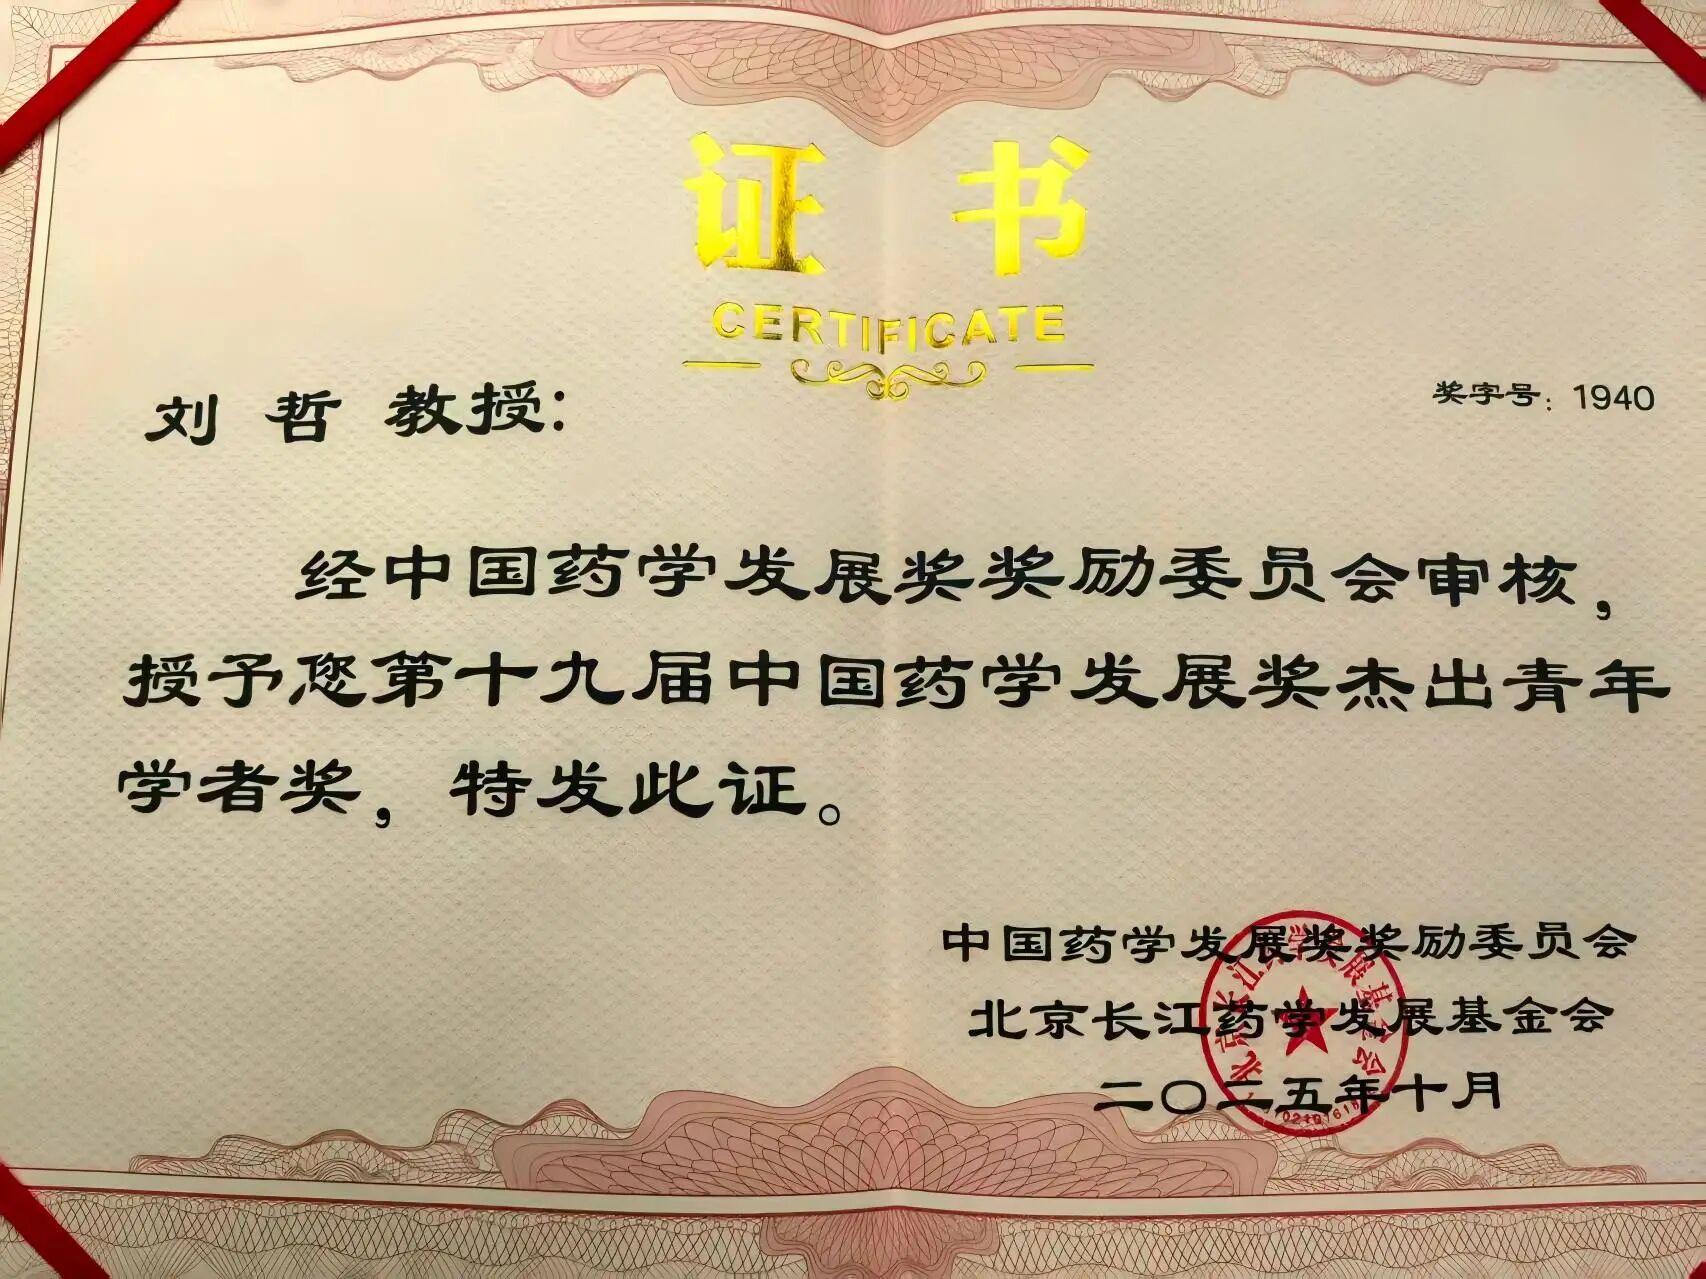 证书
CERTIFICATE
刘 哲 教授:
奖字号：1940
经中国药学发展奖奖励委员会审核，
授予您第十九届中国药学发展奖杰出青年
学者奖，特发此证。
中国药学发展奖奖励委员会
北京长江药学发展基金会
二〇二五年十月
北京长江药学发展基金会